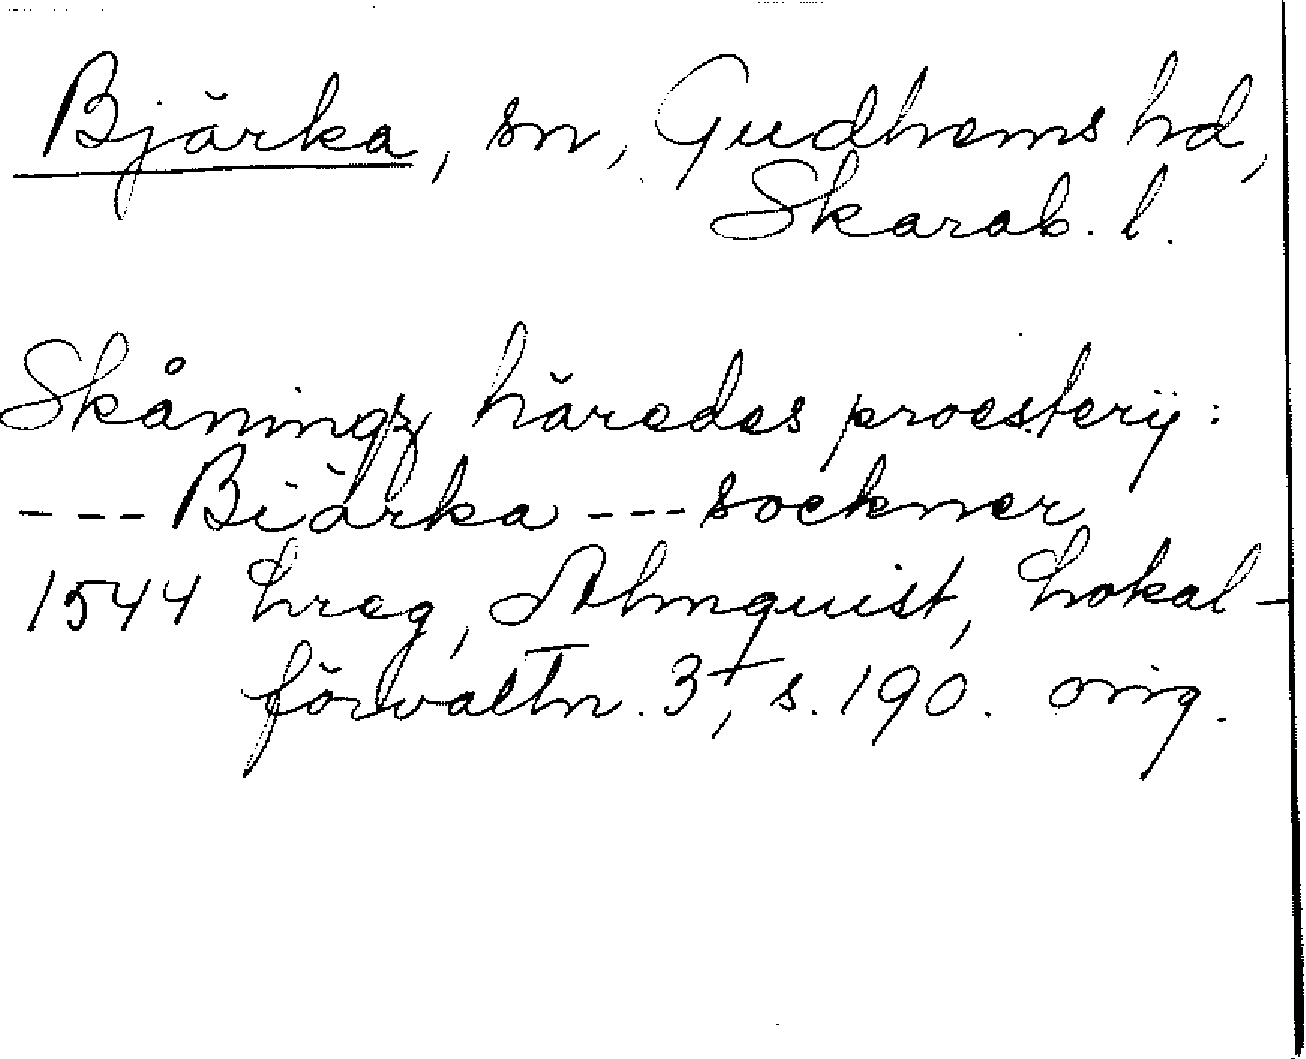 Bjärka, sn, Gudhems hd,
Skarab. l.
Skåningz häredes proesterij:
--- Biärka --- sockner
1544 Lreg, Almquist, Lokal-
förvaltn. 3, s. 190. orig.